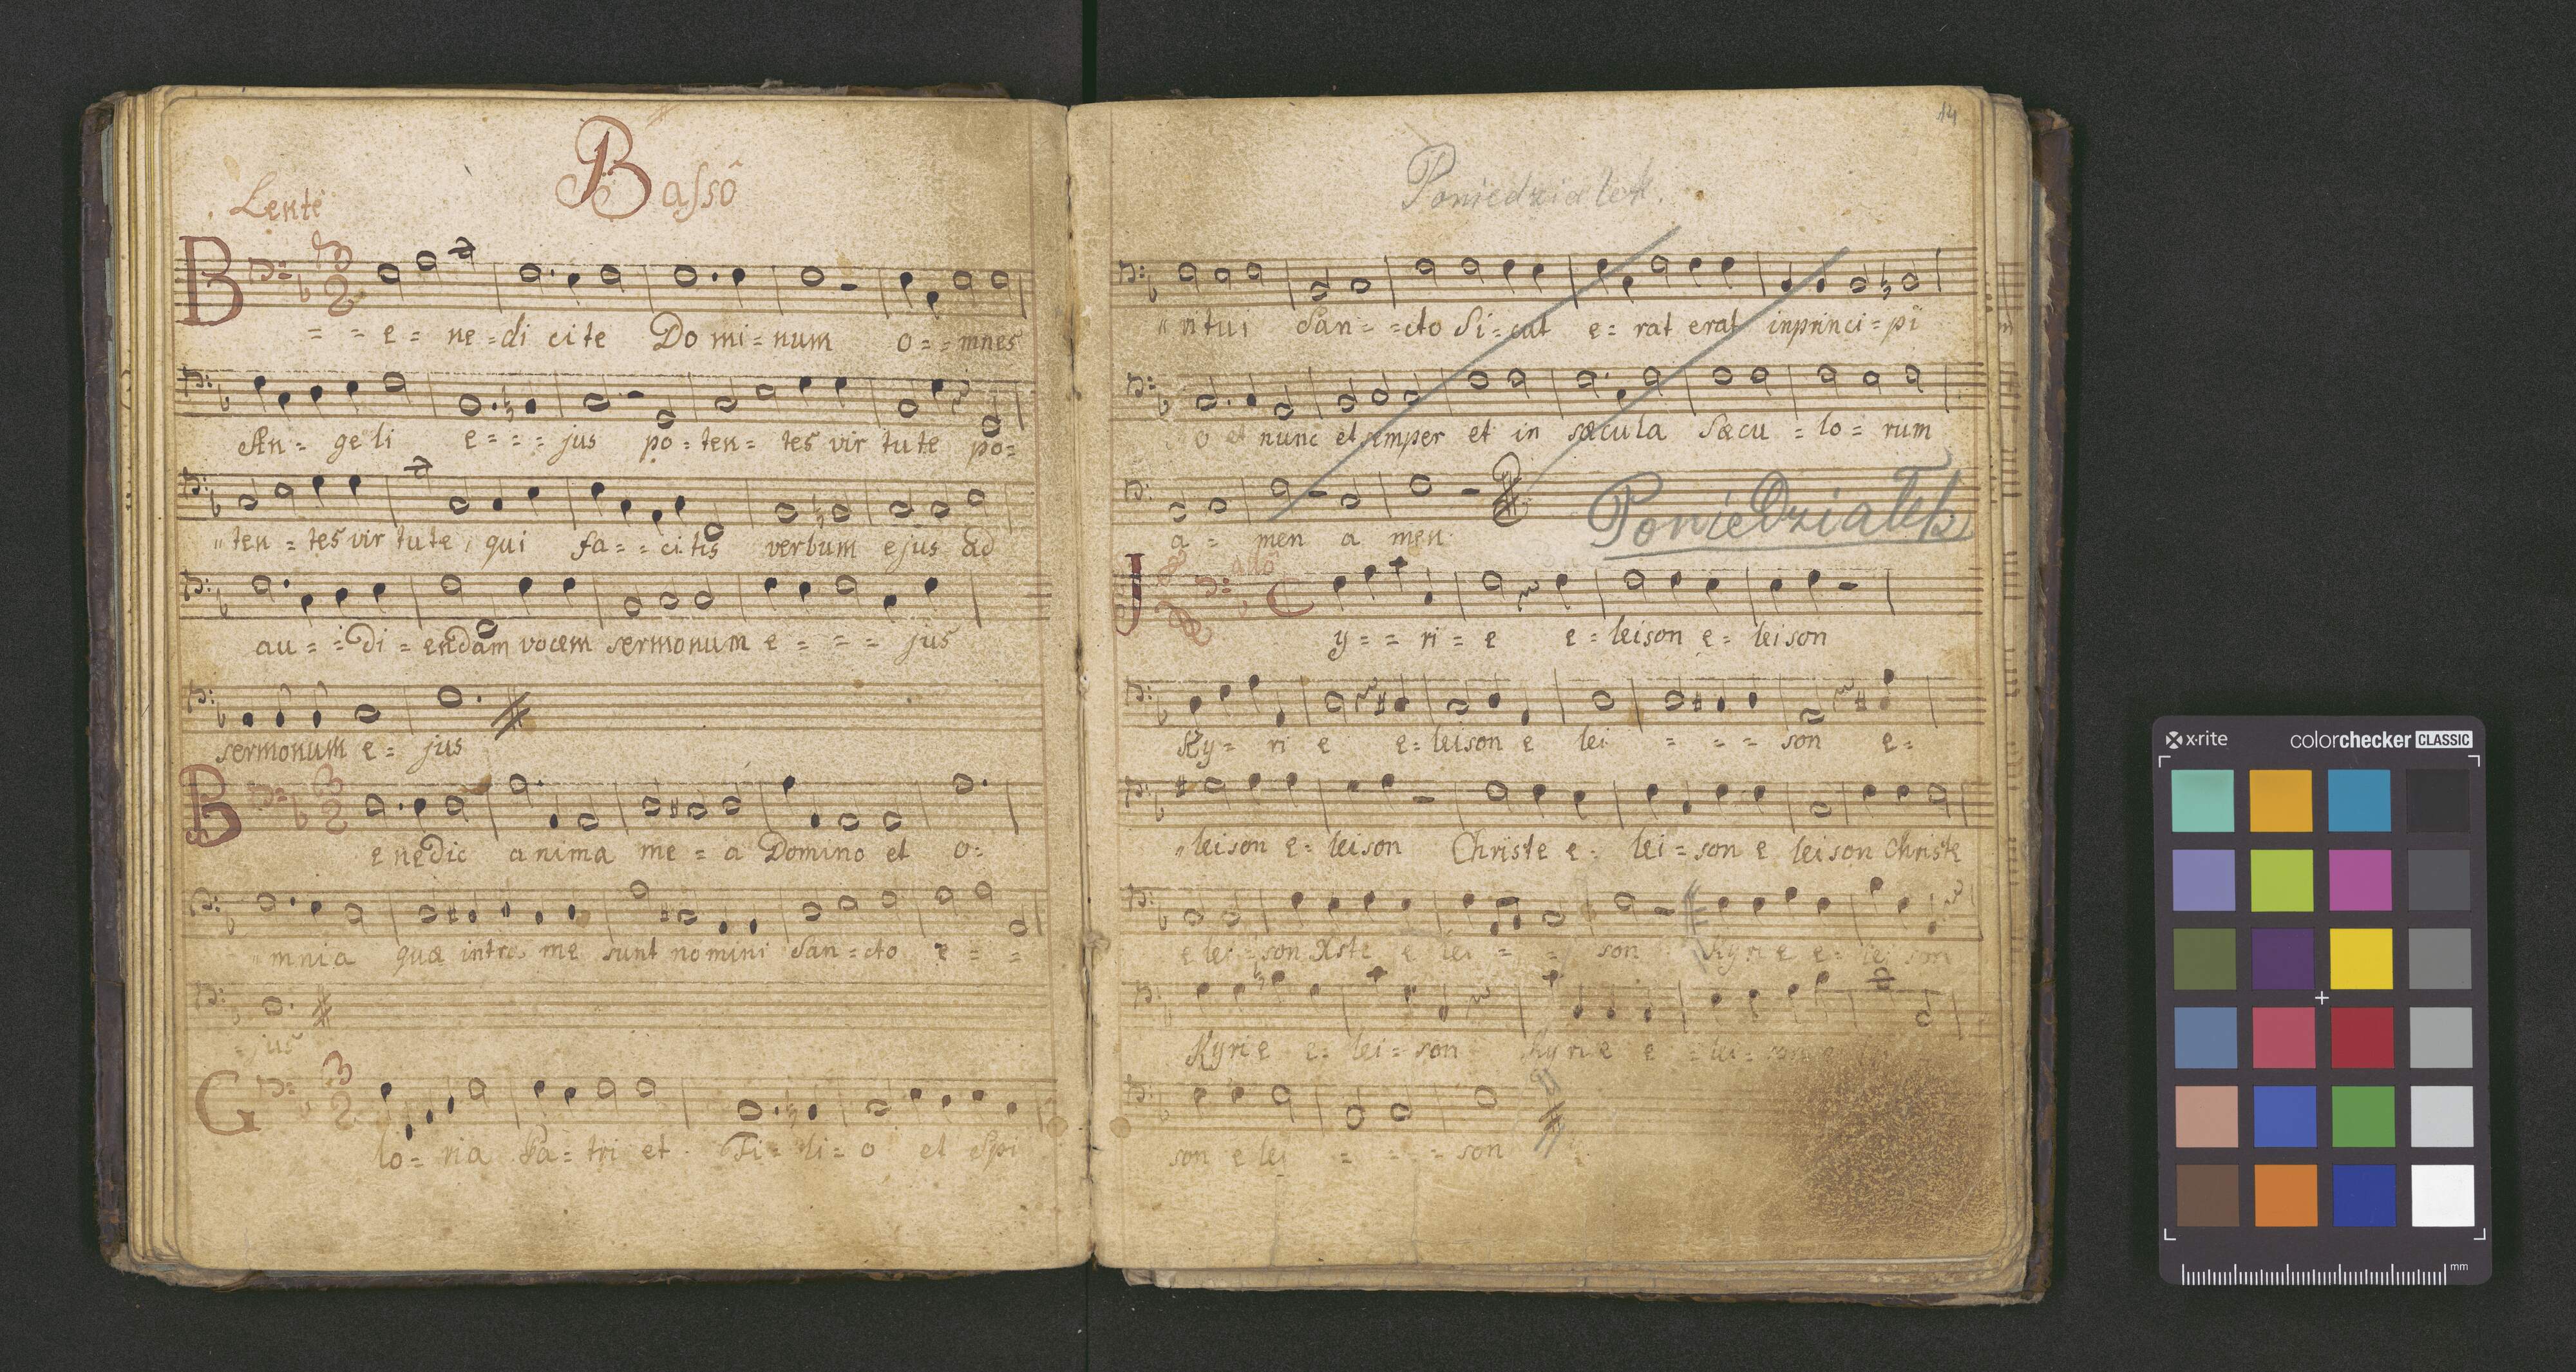 Bassô
Lentè
B = = e = ne = di cite Do mi = num o = = mnes
An = ge li e = = = jus po = ten = tes vir tu te po =
"ten = tes vir tu te, qui fa = = ci tis verbum ejus ad
au = = di = endam vocem sermonum e = = = jus
sermonum e = jus
B enedic anima me = a Domino et o =
"mnia quæ intra me sunt nomini San = cto e = =
= jus
G lo = ria Pa = tri et Fi = li = o et Spi
14
Poniedziałek.
"ritui San = = cto Si = cut e = rat erat in princi = pi
o et nunc et semper et in sæcula sæcu = lo = rum
a = men a men
Poniedziałek
ado
y = = ri = e e = leison e = leison
Ky = ri e e = leison e lei = = = son e =
"leison e = leison Christe e = lei = son e leison Christe
e lei = son Xste e lei = = son Kyri e e = lei son
Kyri e e = lei = son Kyri e e = lei = son e
son e lei = = = son
x·rite colorchecker CLASSIC
mm